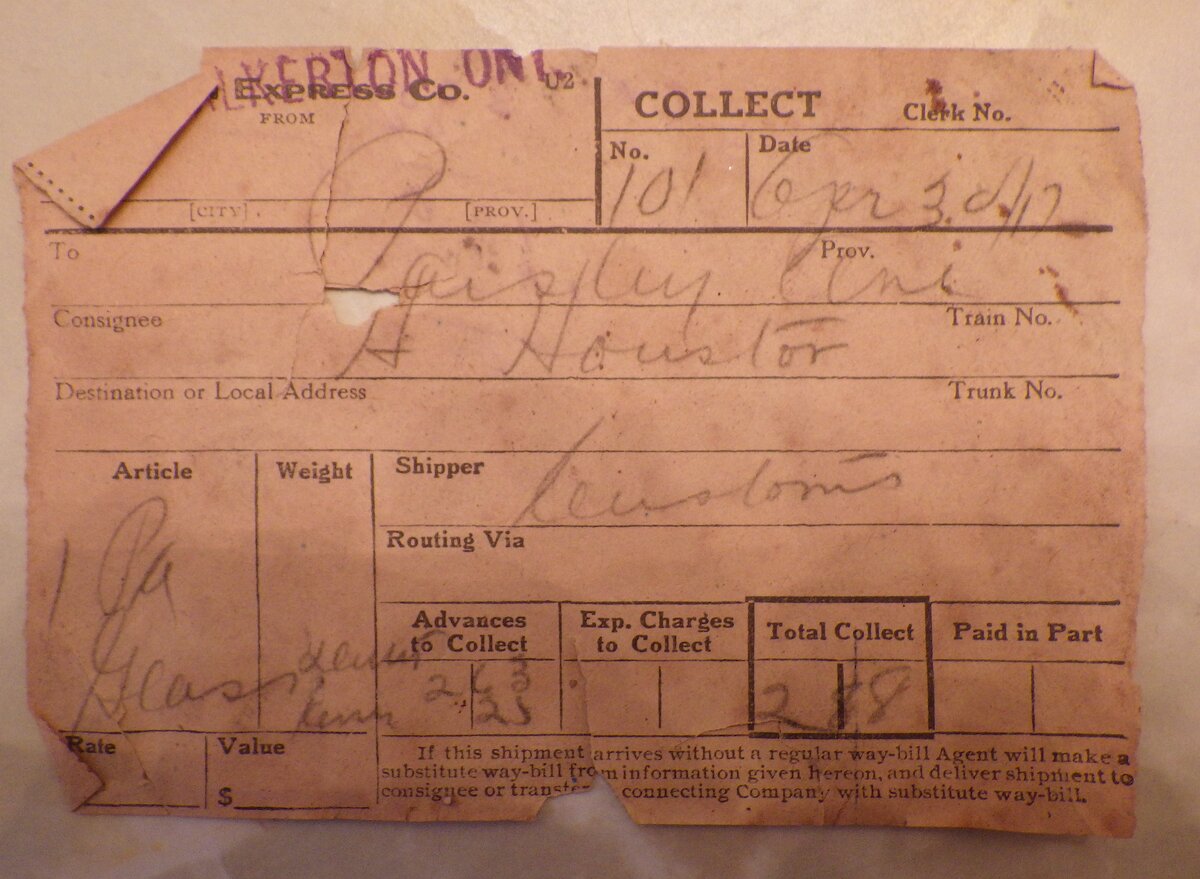 LKERTON ONT.
EXPRESS CO. U2
FROM
COLLECT Clerk No.
No. 101 Date Apr 3rd/17
[CITY]. [PROV.]
To Paisley Prov. Ont
Consignee A Houston Train No.
Destination or Local Address Trunk No.
Article Weight Shipper Customs
Routing Via
1 Pa
Glass
Advances to Collect Exp. Charges to Collect Total Collect Paid in Part
2 63
25
2 88
Rate Value
$
If this shipment arrives without a regular way-bill Agent will make a
substitute way-bill from information given hereon, and deliver shipment to
consignee or transfe connecting Company with substitute way-bill.